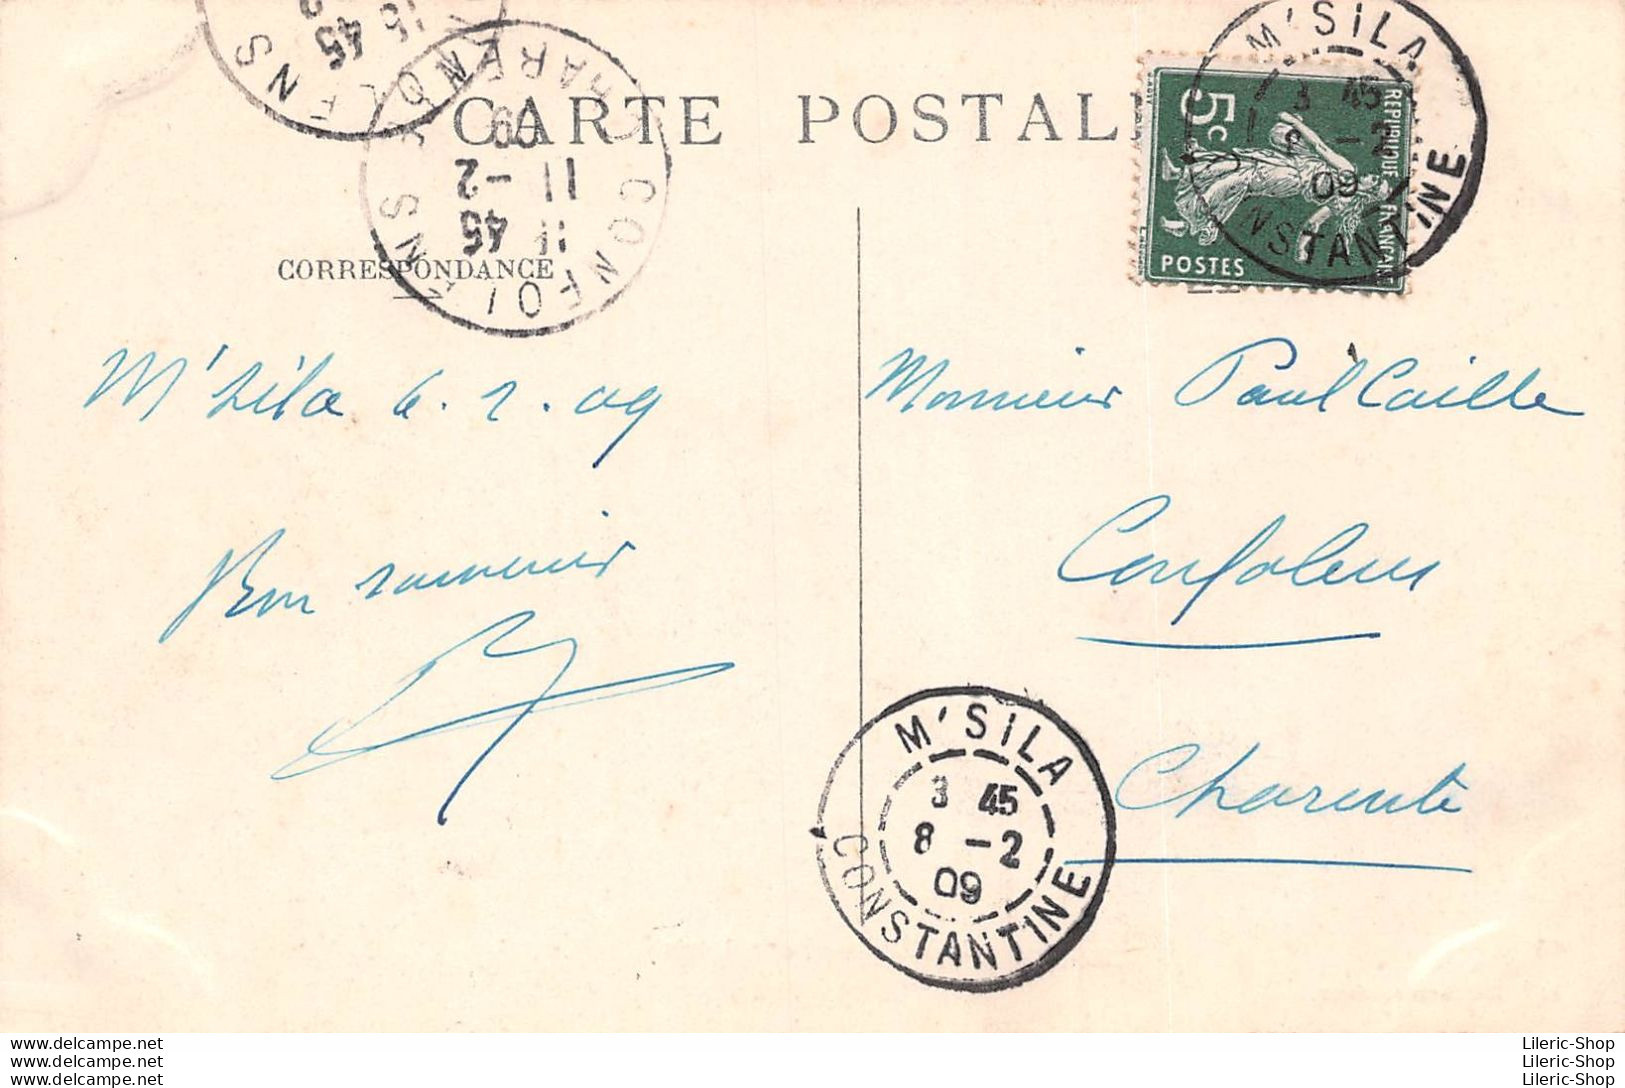 CARTE POSTAL
CORRESPONDANCE
CONFOLENS
CHARENTE
11 45
11 -2
09
15 45
M'SILA
3 45
8 -2
09
CONSTANTINE
5c
REPUBLIQUE FRANÇAISE
POSTES
M'sila 6.2.09
Bon souvenir
Monsieur Paul Caille
Confolens
Charente
M'SILA
3 45
8 -2
09
CONSTANTINE
Lileric-Shop
Lileric-Shop
Lileric-Shop
Lileric-Shop
Lileric-Shop
Lileric-Shop